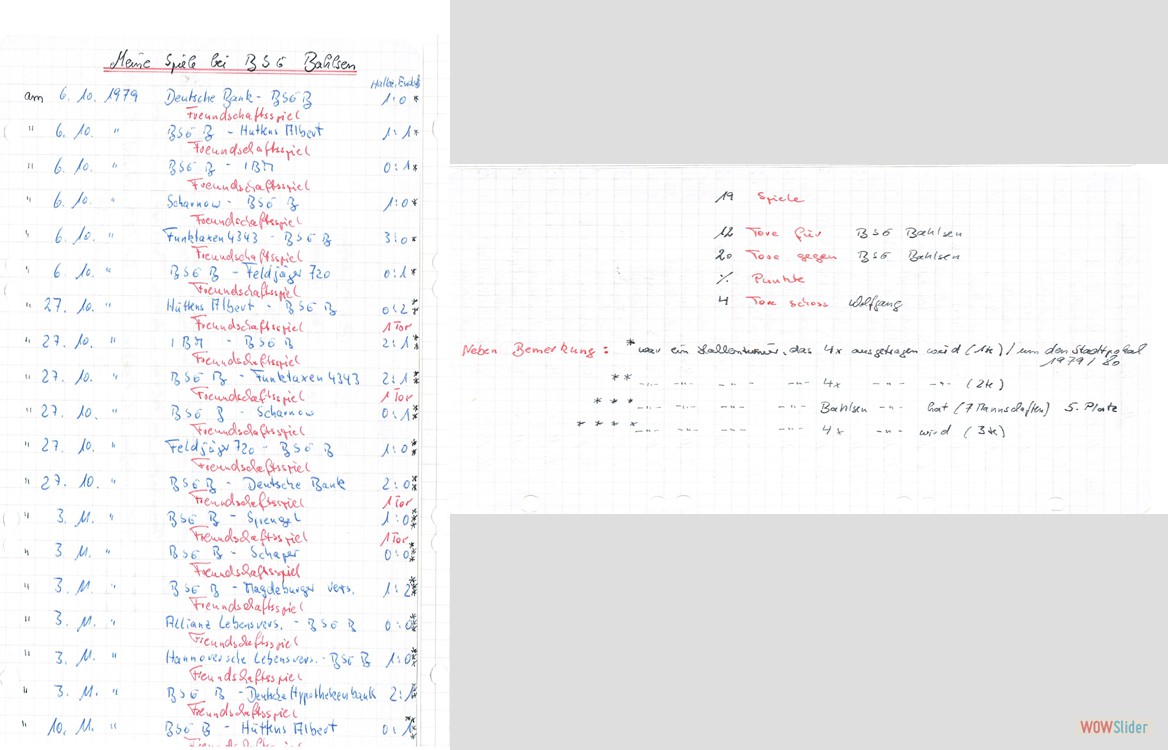 Meine Spiele bei BSG Bahlsen
Halbz. Endst
am 6. 10. 1979 Deutsche Bank - BSG B 1:0 *
Freundschaftsspiel
" 6. 10. " BSG B - Hüttens Albert 1:1 *
Freundschaftsspiel
" 6. 10. " BSG B - IBM 0:1 *
Freundschaftsspiel
" 6. 10. " Scharnow - BSG B 1:0 *
Freundschaftsspiel
" 6. 10. " Funktaxen 4343 - BSG B 3:0 *
Freundschaftsspiel
" 6. 10. " BSG B - Feldjäger 720 0:1 *
Freundschaftsspiel
" 27. 10. " Hüttens Albert - BSG B 0:2 **
Freundschaftsspiel 1 Tor
" 27. 10. " IBM - BSG B 2:1 **
Freundschaftsspiel
" 27. 10. " BSG B - Funktaxen 4343 2:1 **
Freundschaftsspiel 1 Tor
" 27. 10. " BSG B - Scharnow 0:1 **
Freundschaftsspiel
" 27. 10. " Feldjäger 720 - BSG B 1:0 **
Freundschaftsspiel
" 27. 10. " BSG B - Deutsche Bank 2:0 **
Freundschaftsspiel 1 Tor
" 3. 11. " BSG B - Sprengel 1:0
Freundschaftsspiel 1 Tor
" 3. 11. " BSG B - Schaper 0:0
Freundschaftsspiel
" 3. 11. " BSG B - Magdeburger vers. 1:2
Freundschaftsspiel
" 3. 11. " Allianz Lebensvers. - BSG B 0:0
Freundschaftsspiel
" 3. 11. " Hannoversche Lebensvers. - BSG B 1:0
Freundschaftsspiel
" 3. 11. " BSG B - Deutsche Hypothekenbank 2:1
Freundschaftsspiel
" 10. 11. " BSG B - Hüttens Albert 0:1
Freundschaftsspiel
19 Spiele
12 Tore für BSG Bahlsen
20 Tore gegen BSG Bahlsen
% Punkte
4 Tore schoss Wolfgang
Neben Bemerkung: * war ein Hallenturnier, das 4x ausgetragen wird (1te) / um den Stadtpokal
1979/80
** -"- -"- -"- -"- 4x -"- -"- (2te)
*** -"- -"- -"- -"- Bahlsen -"- hat (7 Mannschaften) 5. Platz
**** -"- -"- -"- -"- 4x -"- wird (3te)
WOWSlider